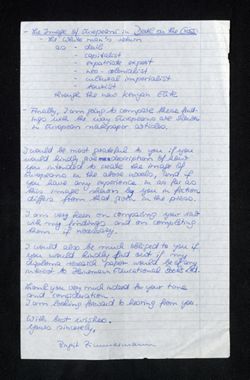 - The Image of Europeans in Devil on the Cross:
- the White man's return
as - devil
- capitalist
- expatriate expert
- neo-colonialist
- cultural imperialist
- tourist
through the new Kenyan Elite
- Finally, I am going to compare these find-
ings with the way Europeans are shown
in European newspaper articles.
I would be most grateful to you if you
would kindly give me a description of how
you intended to make the image of
Europeans in the above novels, and if
you have any experience in as far as
this "image" drawn by you in fiction
differs from that given in the press.
I am very keen on comparing your statement
with my findings and on completing
them if necessary.
I would also be much obliged to you if
you would kindly find out if my
diploma research paper would be of any
interest to Heinemann Educational Books Ltd.
Thank you very much indeed for your time
and consideration.
I am looking forward to hearing from you.
With best wishes.
Yours sincerely,
Zimmermann